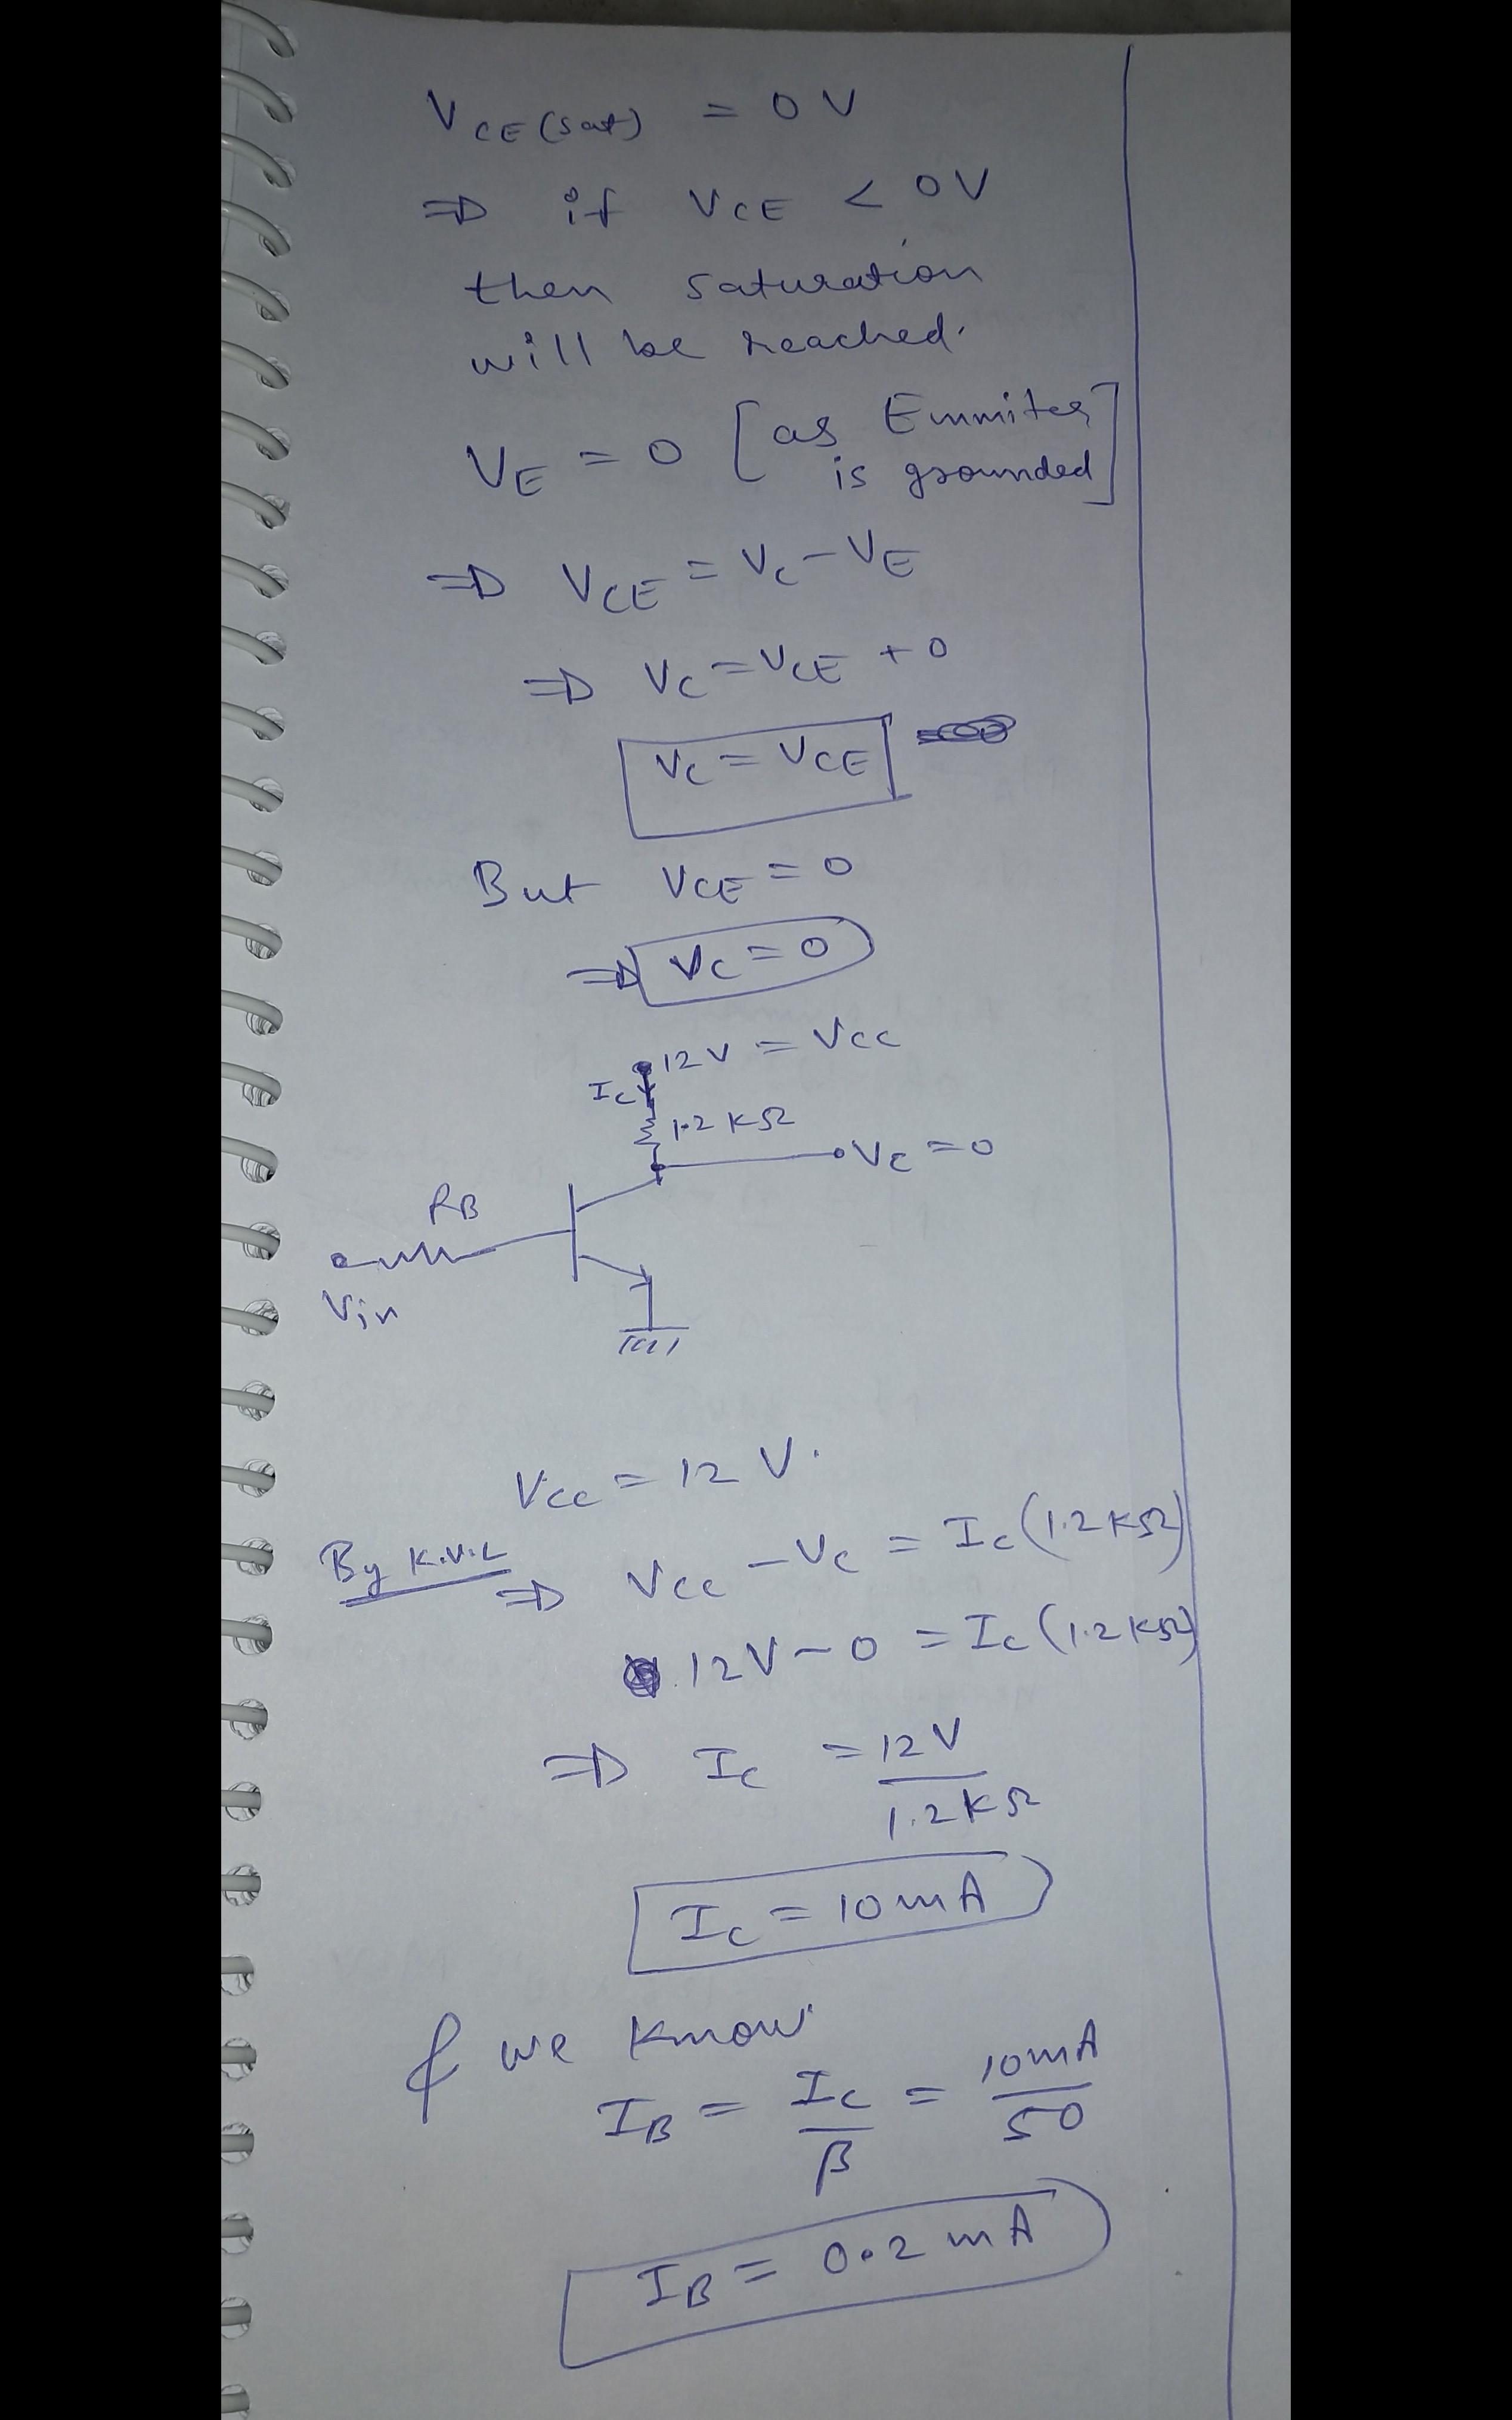 VCE(sat) = 0V
⇒ if VCE < 0V
then saturation
will be reached.
VE = 0 [as Emmiter
is grounded]
⇒ VCE = VC - VE
⇒ VC = VCE + 0
VC = VCE
But VCE = 0
⇒ VC = 0
12V = VCC
IC
1.2 KΩ
VC = 0
RB
Vin
VCC = 12 V.
By K.V.L ⇒ VCC - VC = IC (1.2 KΩ)
12V - 0 = IC (1.2 KΩ)
⇒ IC = 12V
1.2 KΩ
IC = 10 mA
& we know
IB = IC = 10mA
β 50
IB = 0.2 mA